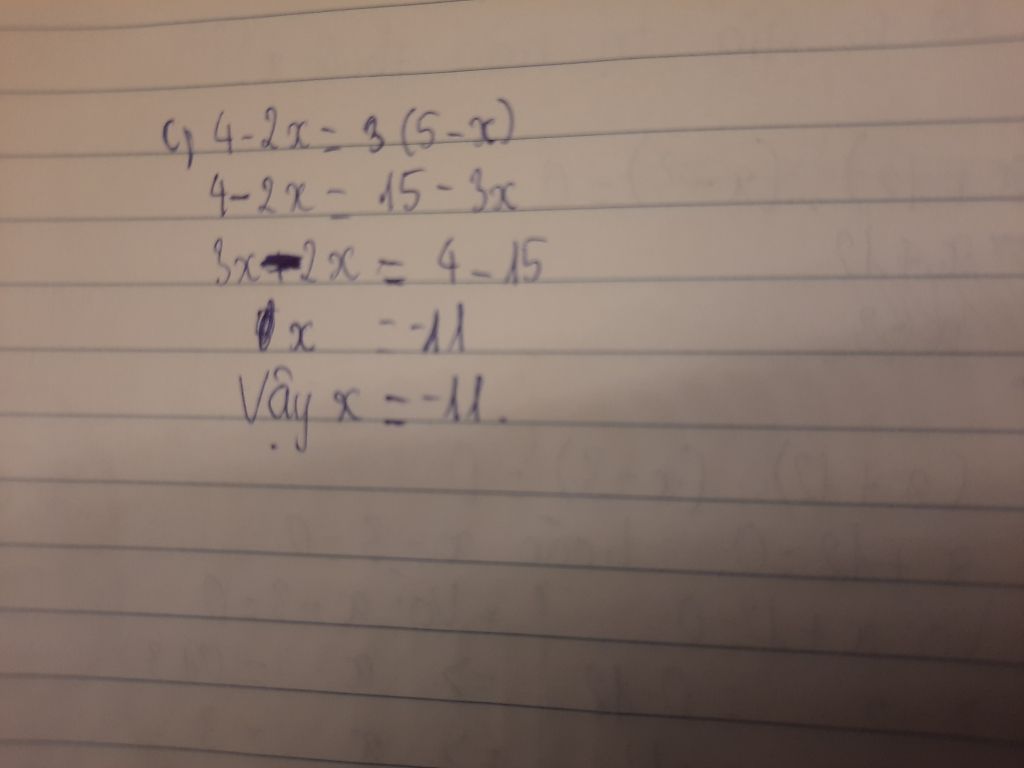 c, 4 - 2x = 3 (5 - x)
4 - 2x = 15 - 3x
3x - 2x = 4 - 15
x = -11
Vậy x = -11.